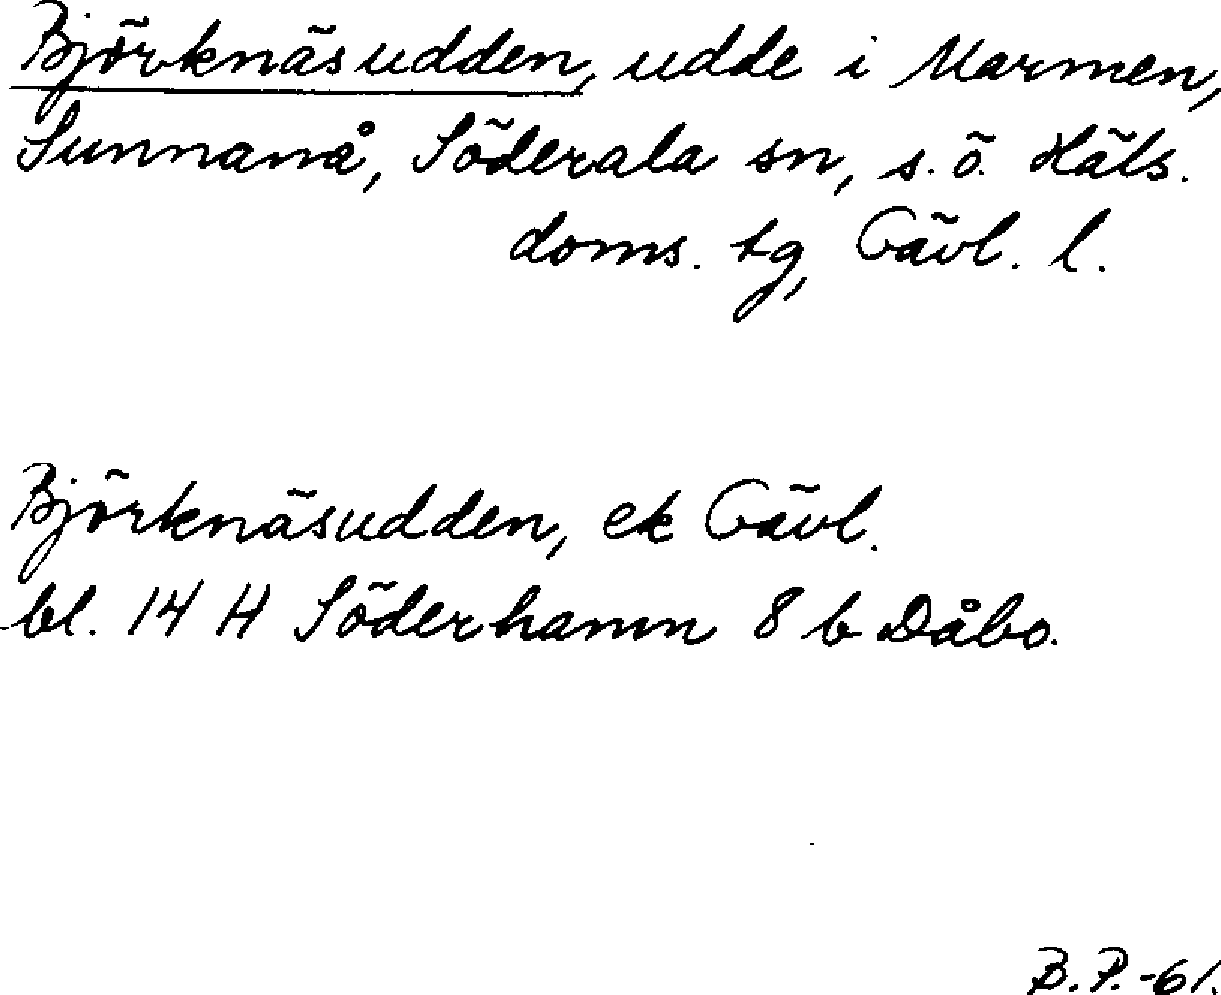 Björknäsudden, udde i Marmen,
Sunnanå, Söderala sn, s.ö. Häls.
doms. tg, Gävl. l.
Björknäsudden, ek Gävl.
bl. 14 H Söderhamn 8 b Dåbo.
B.P.-61.